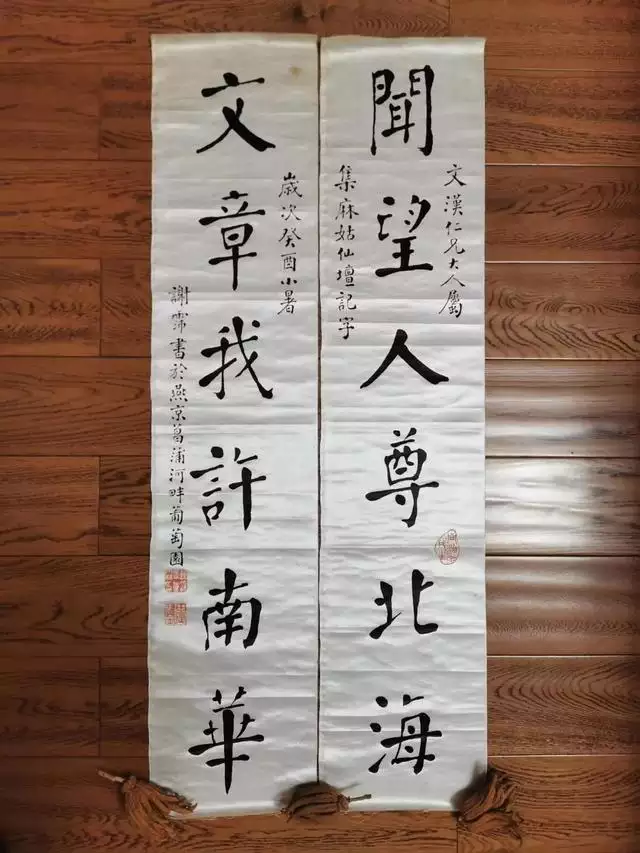 文漢仁兄大人屬
聞望人尊北海
集麻姑仙壇記字
歲次癸酉小暑
文章我許南華
謝霈書於燕京菖蒲河畔葡萄園